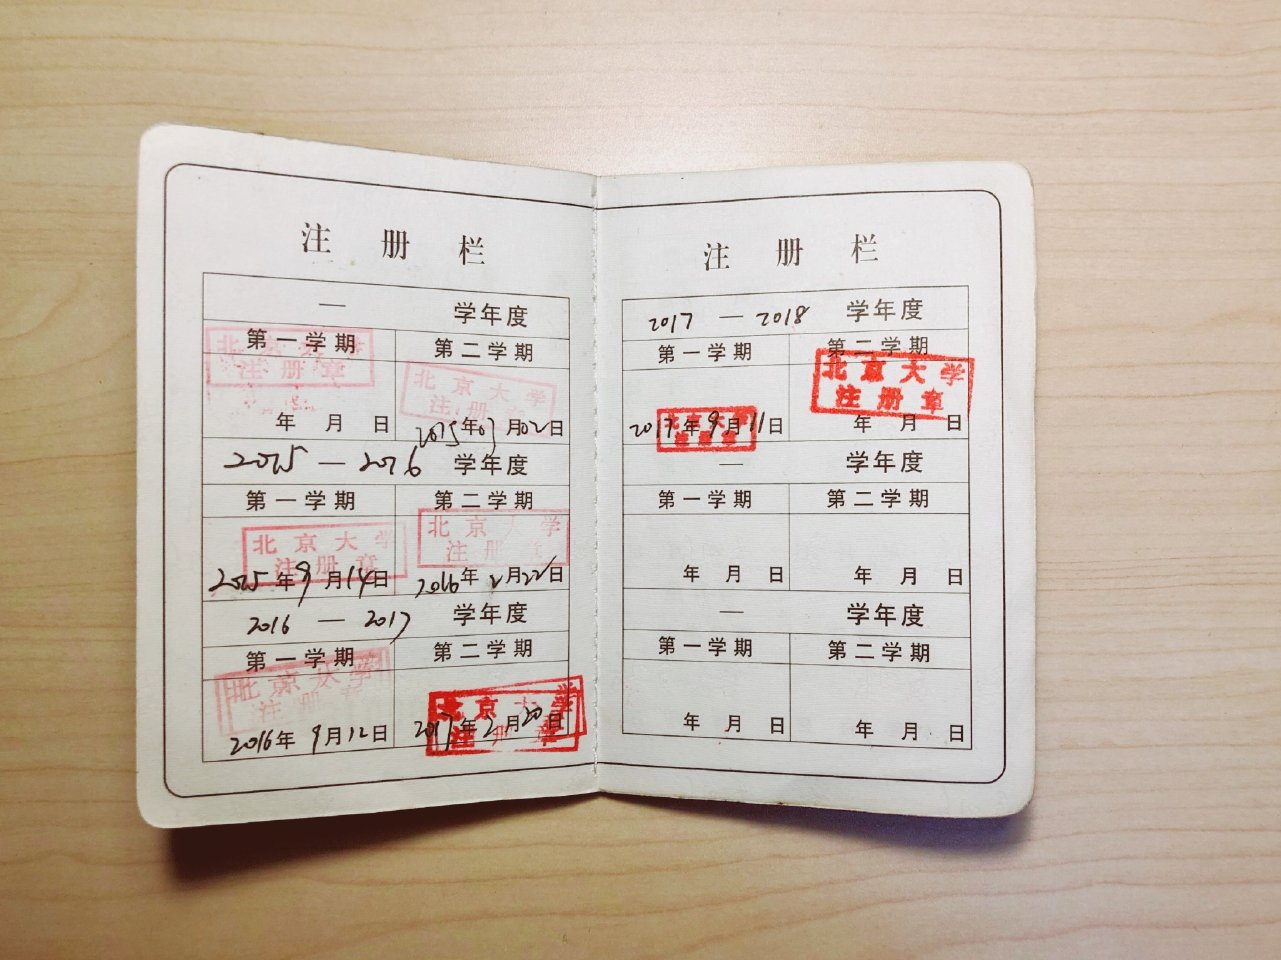 注册栏
— 学年度
第一学期 第二学期
北京大学 北京大学
注册章 注册章
年 月 日 2015年03月02日
2015 — 2016 学年度
第一学期 第二学期
北京大学 北京 学
注册章 注册章
2015年9月14日 2016年2月22日
2016 — 2017 学年度
第一学期 第二学期
北京大学 北京大学
注册章 注册章
2016年9月12日 2017年2月20日
注册栏
2017 — 2018 学年度
第一学期 第二学期
北京大学
注册章
北京大学
注册章
2017年9月11日 年 月 日
— 学年度
第一学期 第二学期
年 月 日 年 月 日
— 学年度
第一学期 第二学期
年 月 日 年 月 日